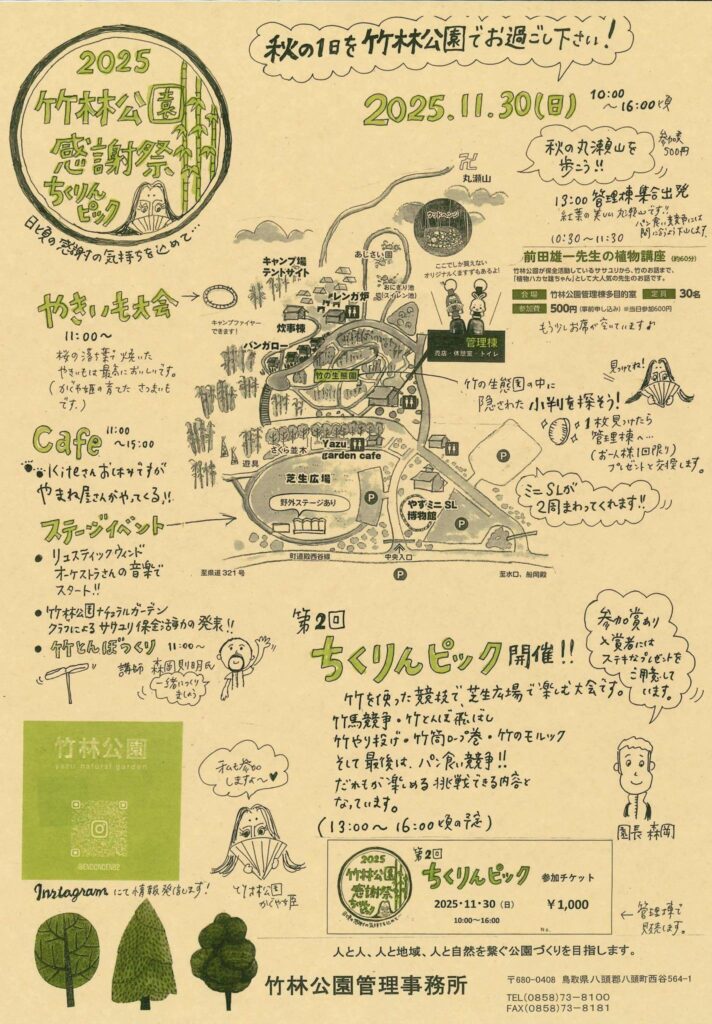 秋の1日を竹林公園でお過ごし下さい!
2025
竹林公園
感謝祭
ちくりん
ピック
日頃の感謝の気持ちを込めて…
2025.11.30(日)
10:00
~16:00頃
秋の丸瀬山を
歩こう!!
参加費
500円
13:00 管理棟集合出発
紅葉の美しい丸瀬山です!!
パン食い競争には
間に合うよう下山します。
10:30~11:30
前田雄一先生の植物講座 (約60分)
竹林公園が保全活動しているササユリから、竹のお話まで、
「植物ハカセ雄ちゃん」として大人気の先生のお話です。
会場 竹林公園管理棟多目的室 定員 30名
参加費 500円 (事前申し込み) ※当日参加600円
もう少しお席が空いています♪
卍
丸瀬山
ウッドヘンジ
ここでしか買えない
オリジナルくまずずもあるよ!
キャンプ場
テントサイト
あじさい園
レンガ炉
おにぎり池
(スイレン池)
炊事棟
バンガロー
キャンプファイヤー
できます!
竹の生態園
管理棟
売店・休憩室・トイレ
さくら並木
遊具
Yazu
garden cafe
芝生広場
野外ステージあり
P
P
P
P
やずミニSL
博物館
町道殿西谷線
中央入口
至県道321号
至水口、船岡殿
やきいも大会
11:00~
桜の落ち葉で焼いた
やきいもは最高においしいです。
(かぐや姫の育てたさつまいも
です。)
Cafe
11:00
~15:00
Kiteさんお休みですが
やまね屋さんがやってくる!!
ステージイベント
・リュスティックウィンド
オーケストラさんの音楽で
スタート!!
・竹林公園ナチュラルガーデン
クラブによるササユリ保全活動の発表!!
・竹とんぼつくり 11:00~
講師 森岡則明氏
一緒につくり
ましょう
竹の生態園の中に
隠された小判を探そう!
見つけてね!
1枚見つけたら
管理棟へ…
(お一人様1回限り)
プレゼントと交換します。
ミニSLが
2周まわってくれます!!
第2回
ちくりんピック開催!!
竹を使った競技で、芝生広場で楽しむ大会です。
竹馬競争・竹とんぼ飛ばし
竹やり投げ・竹筒ロープ巻・竹のモルック
そして最後は、パン食い競争!!
だれもが楽しめる挑戦できる内容と
なっています。
(13:00~16:00頃の予定)
参加賞あり
入賞者には
ステキなプレゼントを
ご用意して
います。
園長 森岡
竹林公園
yazu natural garden
Instagramにて情報発信します!
私も参加
しますよ~♥
竹林公園
かぐや姫
2025
竹林公園
感謝祭
ちくりん
ピック
第2回
ちくりんピック
参加チケット
2025・11・30(日)
10:00~16:00
¥1,000
No.
←管理棟で
販売します。
人と人、人と地域、人と自然を繋ぐ公園づくりを目指します。
竹林公園管理事務所
〒680-0408 鳥取県八頭郡八頭町西谷564-1
TEL(0858)73-8100
FAX(0858)73-8181